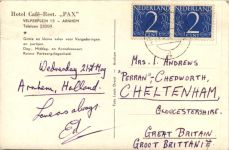 Hotel Café-Rest. „PAX”
VELPERPLEIN 15 - ARNHEM
Telefoon
Grote en kleine zalen voor Vergaderingen
en partijen
Ruime Parkeergelegenheid
NEDERLAND
2
NEDERLAND
2
Wednesday 21st Aug
Arnhem, Holland.
Love as always
Ed
Mrs. I. Andrews
"Perran"-Chedworth,
CHELTENHAM,
Gloucestershire.
Great Britain
Groot Brittanië